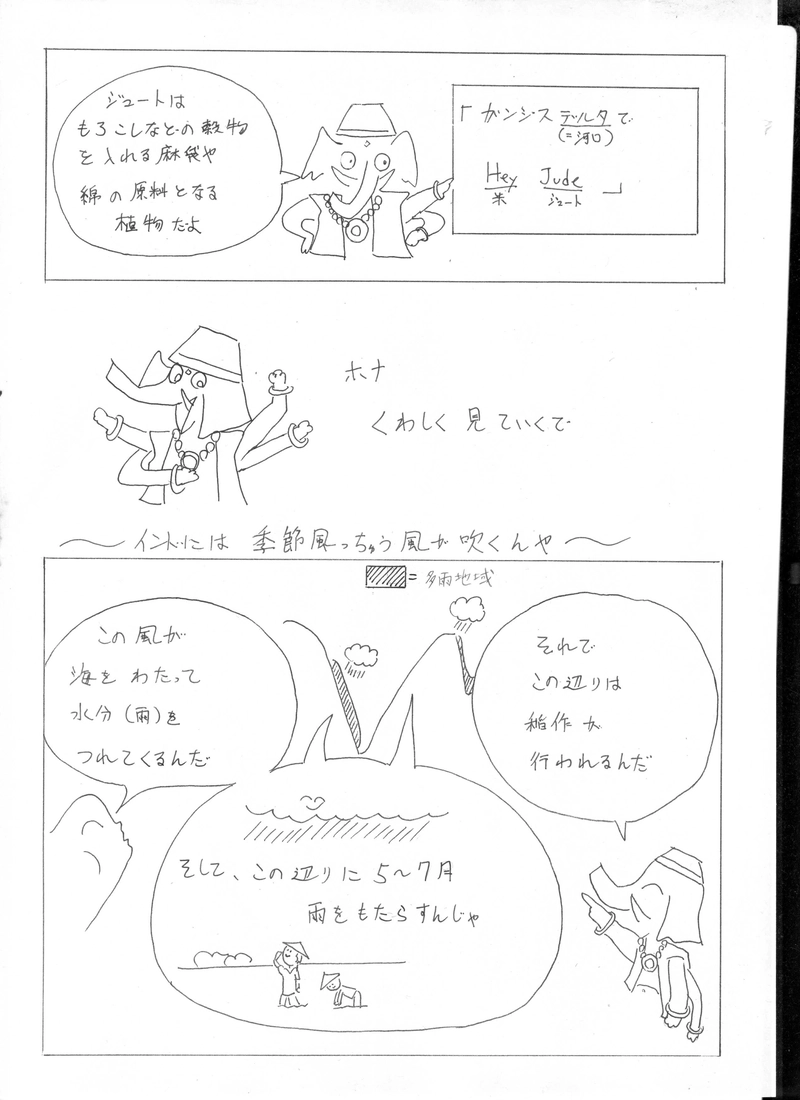 ジュートは
もろこしなどの穀物
を入れる麻袋や
綿の原料となる
植物だよ
「ガンジスデルタで
(=河口)
Hey Jude」
米 ジュート
ホナ
くわしく見ていくで
～インドには 季節風っちゅう風が吹くんや～
=多雨地域
この風が
海をわたって
水分(雨)を
つれてくるんだ
それで
この辺りは
稲作が
行われるんだ
そして、この辺りに5～7月
雨をもたらすんじゃ